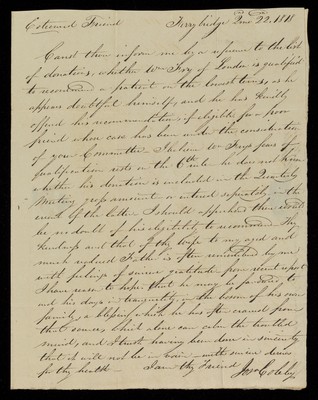 Esteemed Friend Ferrybridge 22. 1818
Canst thou inform me by a reference to the list
of donations, whether Wm Fry of London is qualified
to recommend a patient on the lowest terms, as he
appears doubtful himself, and he has kindly
offered his recommendation if eligible for a poor
friend whose case has been under the consideration
of your Committee. I believe Wm Frys fears of
qualification rests on the 6th rule he does not know
whether his donation is included in the Quarterly
Meeting gross amount or entered separately, in the
event of the latter I should apprehend there would
be no doubt of his eligibility to recommend. Thy
kindness and that of thy wife to my aged and
much reduced Father is often remembered by me
with feelings of sincere gratitude, from recent report
I have reason to hope that he may be favored to
end his days in tranquility in the bosom of his own
family, a blessing which he has often craved from
that source, which alone can calm the troubled
mind, and I trust having been done in sincerity
that it will not be in vain — with sincere desires
for thy health — I am thy Friend